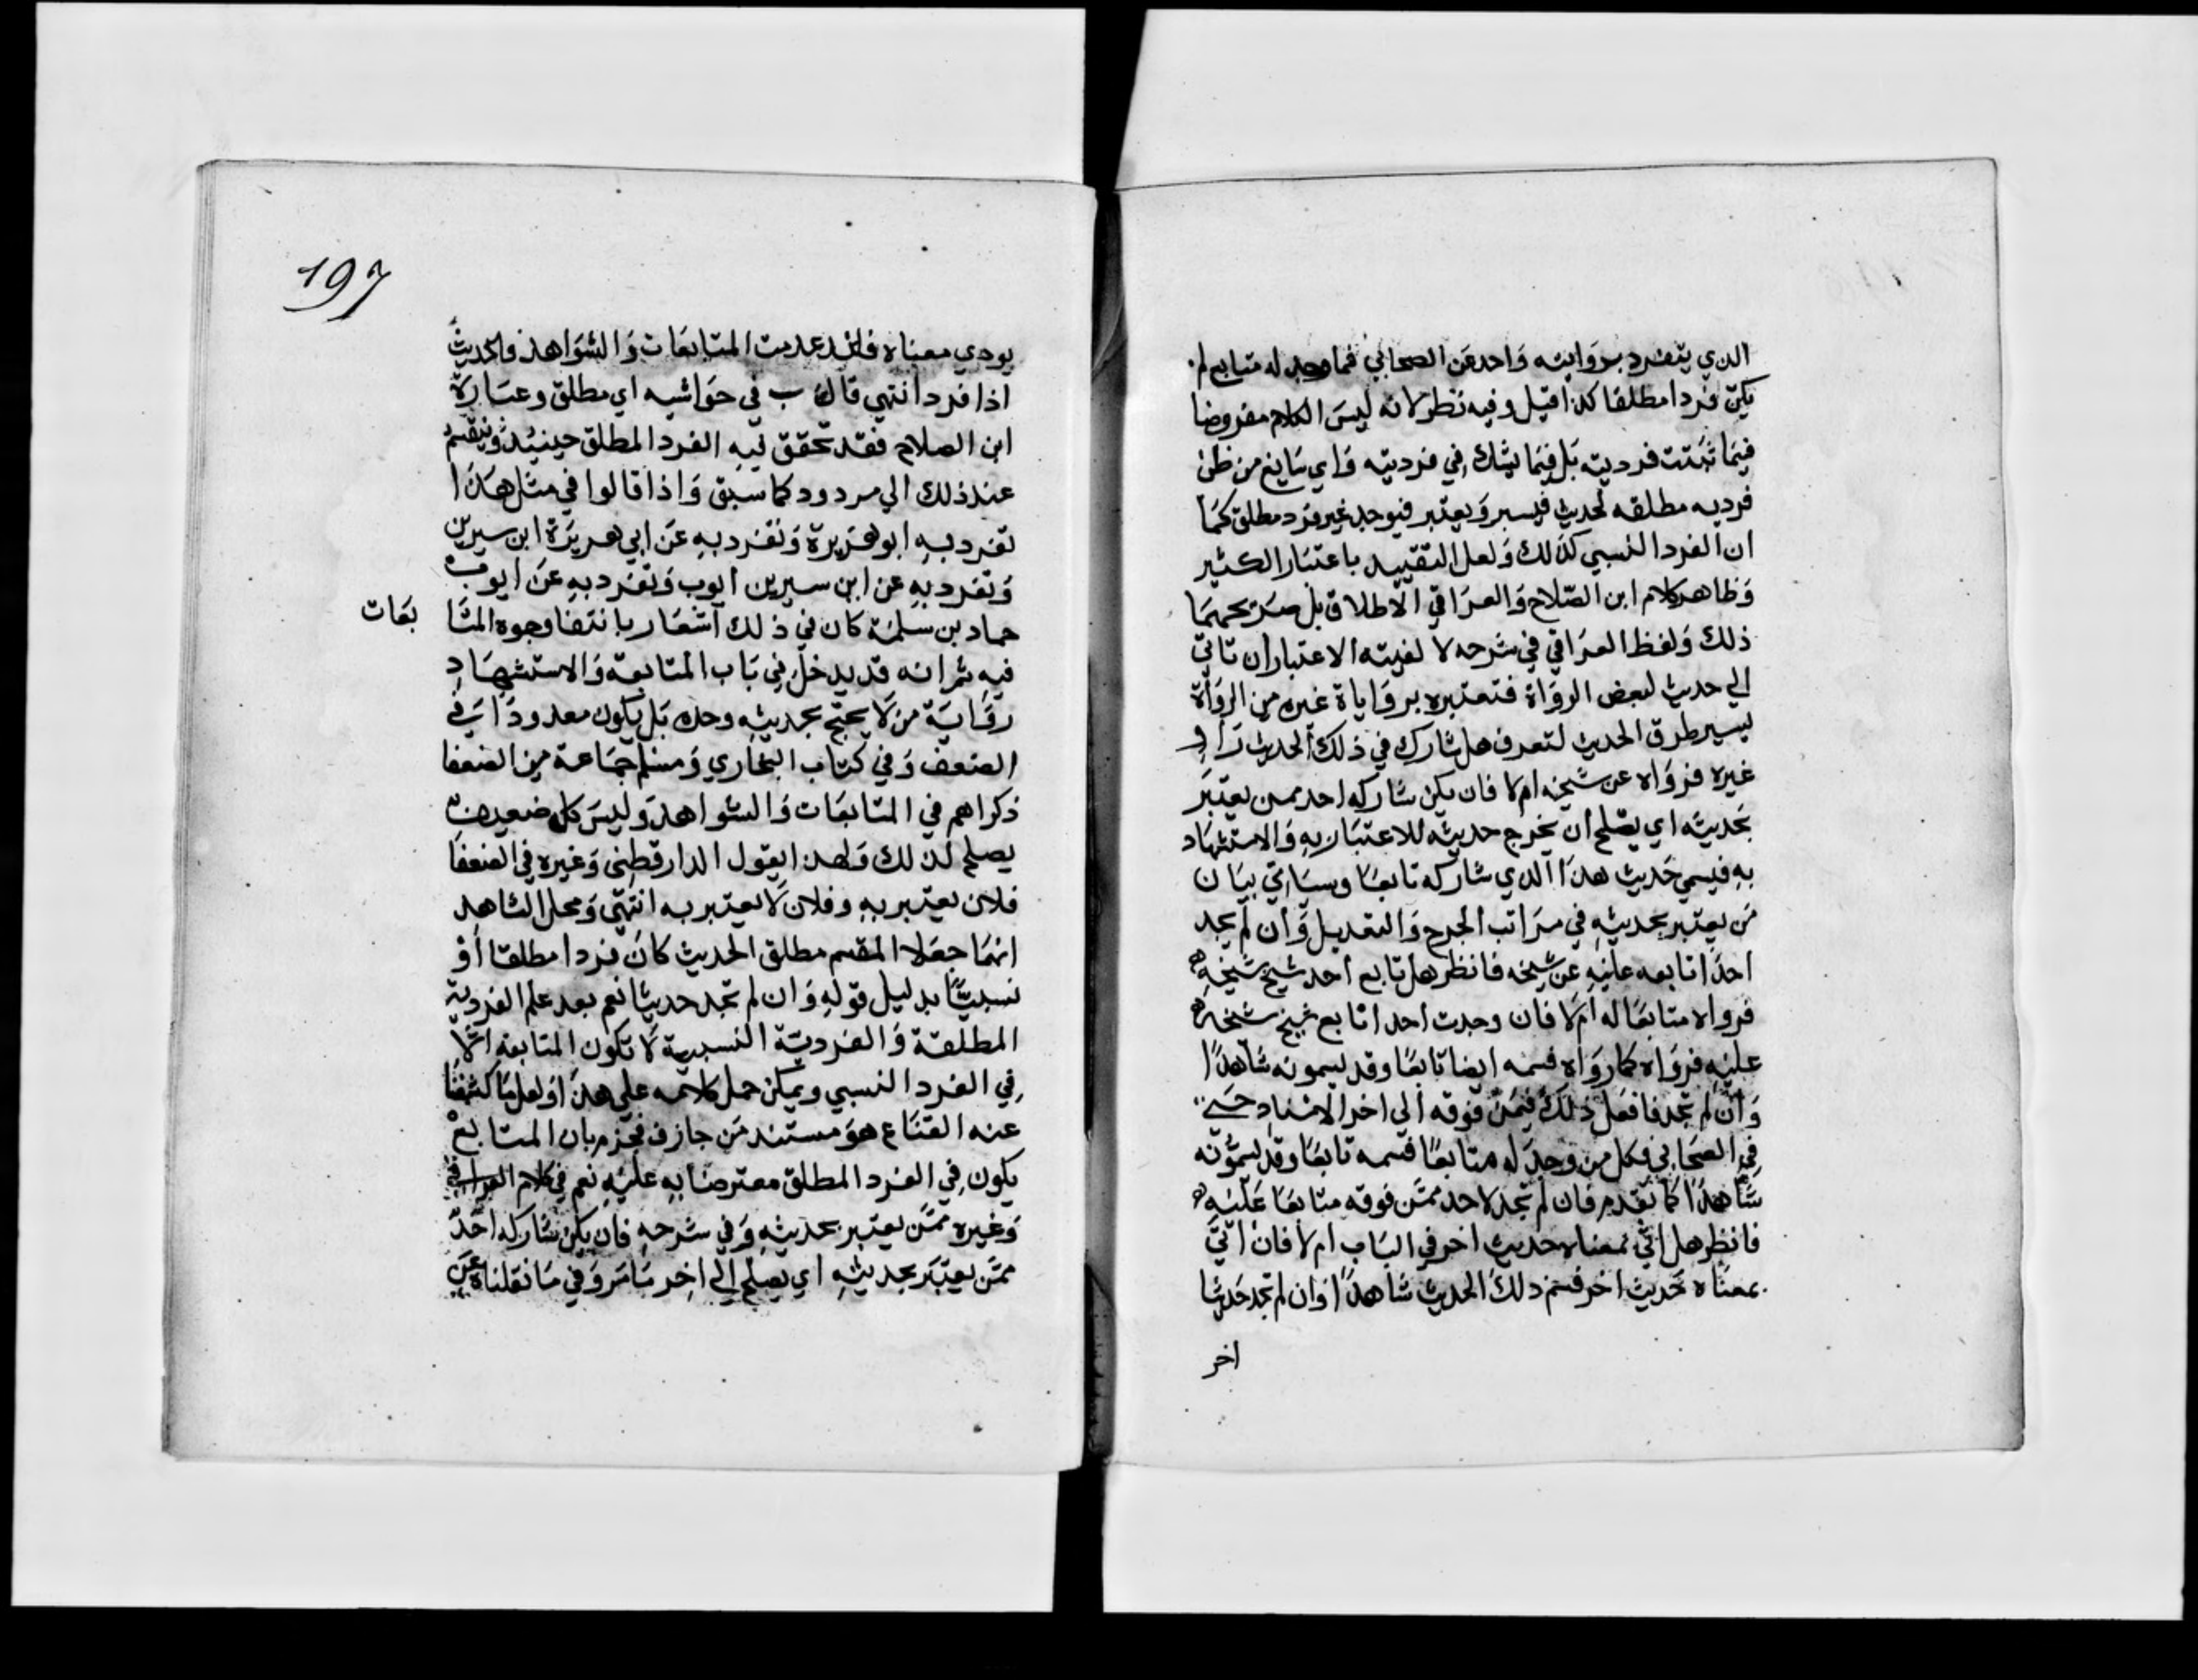 الذي يتفرد بروايته واحد عن الصحابي فما وجد له متابع لم
يكن فردا مطلقا كذا قيل وفيه نظر لانه ليس الكلام مفروضا
فيما ثبتت فرديته بل فيما يشك في فرديته واي مانع من ظن
فرديه مطلقه لحديث فيسبر ويعتبر فيوجد غير فرد مطلق كما
ان الفرد النسبي كذلك ولعل التقييد باعتبار الكثير
وظاهر كلام ابن الصلاح والعراقي الاطلاق بل صريحهما
ذلك ولفظ العراقي في شرحه لا لفيته الاعتبار ان تاتي
الي حديث لبعض الرواة فتعتبره بروايات غيره من الرواة
ليسير طرق الحديث لتعرف هل شارك في ذلك الحديث راو
غيره فرواه عن شيخه ام لا فان يكن شاركه احد ممن يعتبر
بحديثه اي يصلح ان يخرج حديثه للاعتبار به والاستشهاد
به فيسمي حديث هذا الذي شاركه تابعا وسياتي بيان
من يعتبر بحديثه في مراتب الجرح والتعديل وان لم يجد
احدا تابعه عليه عن شيخه فانظر هل تابع احد شيخ شيخه
فرواه متابعا له ام لا فان وجدت احدا تابع شيخ شيخه
عليه فرواه كما رواه فسمه ايضا تابعا وقد يسمونه شاهدا
وان لم تجد فافعل ذلك فيمن فوقه الي اخر الاسناد حتي
في الصحابي فكل من وجد له متابعا فسمه تابعا وقد يسمونه
شاهدا كما تقدم فان لم تجد لاحد ممن فوقه متابعا عليه
فانظر هل اتي بمعناه حديث اخر في الباب ام لا فان اتي
بمعناه حديث اخر فسم ذلك الحديث شاهدا وان لم تجد حديثا
اخر
197
يودي معناه فانقد عدمت المتابعات والشواهد فالحديث
اذا فرد انتهي قال ب في حواشيه اي مطلق وعبارة
ابن الصلاح فقد تحقق فيه الفرد المطلق حينيذ وينقسم
عند ذلك الي مردود كما سبق واذا قالوا في مثل هذا
تفرد به ابو هريرة وتفرد به عن ابي هريرة ابن سيرين
وتفرد به عن ابن سيرين ايوب وتفرد به عن ايوب
حماد بن سلمة كان في ذلك اشعار بانتفا وجوه المتا
بعات
فيه ثم انه قد يدخل في باب المتابعة والاستشهاد
رواية من لا يحتج بحديثه وحده بل يكون معدودا في
الضعف وفي كتاب البخاري ومسلم جماعة من الضعفا
ذكراهم في المتابعات والشواهد وليس كل ضعيف
يصلح لذلك ولهذا يقول الدارقطني وغيره في الضعفا
فلان يعتبر به وفلان لا يعتبر به انتهي ومحل الشاهد
انهما جعلا المقسم مطلق الحديث كان فردا مطلقا او
نسبيا بدليل قوله وان لم تجد حديثا نعم بعد علم الفردية
المطلقة والفردية النسبية لا تكون المتابعة الا
في الفرد النسبي ويمكن حمل كلامه علي هذا ولعل ما كشفنا
عنه القناع هو مستند من جازف فجزم بان المتابع
يكون في الفرد المطلق معترضا به عليه نعم في كلام العراقي
وغيره ممن يعتبر بحديثه وفي شرحه فان يكن شاركه احد
ممن يعتبر بحديثه اي يصلح الي اخر ما مر وفي ما نقلناه عن